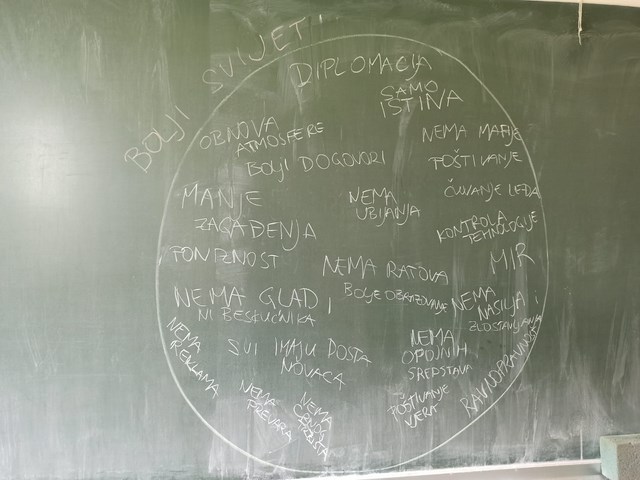 BOLJI SVIJET!
DIPLOMACIJA
SAMO
ISTINA
OBNOVA
ATMOSFERE
NEMA MAFIJE
BOLJI DOGOVORI
POŠTIVANJE
MANJE
ZAGAĐENJA
NEMA
UBIJANJA
ČUVANJE LEDA
KONTROLA
TEHNOLOGIJE
MIR
NEMA RATOVA
NEMA GLADI
NI BESKUĆNIKA
BOLJE OBRAZOVANJE
NEMA
NASILJA I
ZLOSTAVLJANJA
NEMA
REKLAMA
SVI IMAJU DOSTA
NOVACA
NEMA
OPOJNIH
SREDSTAVA
RAVNOPRAVNOST
NEMA
PREVARA
NEMA
CRNOG
POŠTIVANJE
VJERA